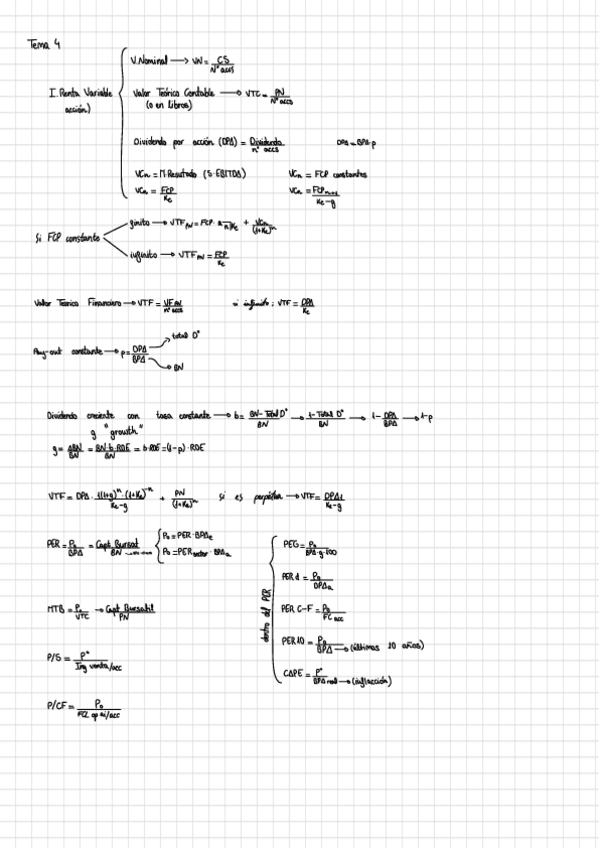 Tema 4
I. Renta Variable (acción)
V. Nominal → VN = CS / Nº accs
Valor Teórico Contable (o en libros) → VTC = PN / Nº accs
Dividendo por acción (DPA) = Dividendo / nº accs    DPA = BPA · p
VCn = M · Resultado (5 · EBITDA)    VCn = FCP constantes
VCn = FCP / Ke    VCn = FCPn+1 / Ke - g
Si FCP constante
finito → VTF PN = FCP · a n¬Ke + VCn / (1+Ke)^n
infinito → VTF PN = FCP / Ke
Valor Teórico Financiero → VTF = VF PN / nº accs    si infinito: VTF = DPA / Ke
Pay-out constante → p = DPA / BPA → total Dº → BN
Dividendo creciente con tasa constante → b = BN - Total Dº / BN → 1 - Total Dº / BN → 1 - DPA / BPA → 1 - p
g "growth"
g = ΔBN / BN = BN · b · ROE / BN = b · ROE = (1-p) · ROE
VTF = DPA · 1-(1+g)^n · (1+Ke)^-n / Ke - g + PN / (1+Ke)^n    si es perpetua → VTF = DPA1 / Ke - g
PER = P0 / BPA = Capt. Bursat / BN
P0 = PER · BPAe
P0 = PER sector · BPAa
MTB = P0 / VTC → Capt Bursatil / PN
P/S = Pº / Ing venta/acc
P/CF = P0 / FCL op si/acc
dentro del PER
PEG = P0 / BPA · g · 100
PER d = P0 / DPAa
PER C-F = P0 / FC acc
PER 10 = P0 / BPA → (últimos 10 años)
CAPE = Pº / BPA real → (inflacción)